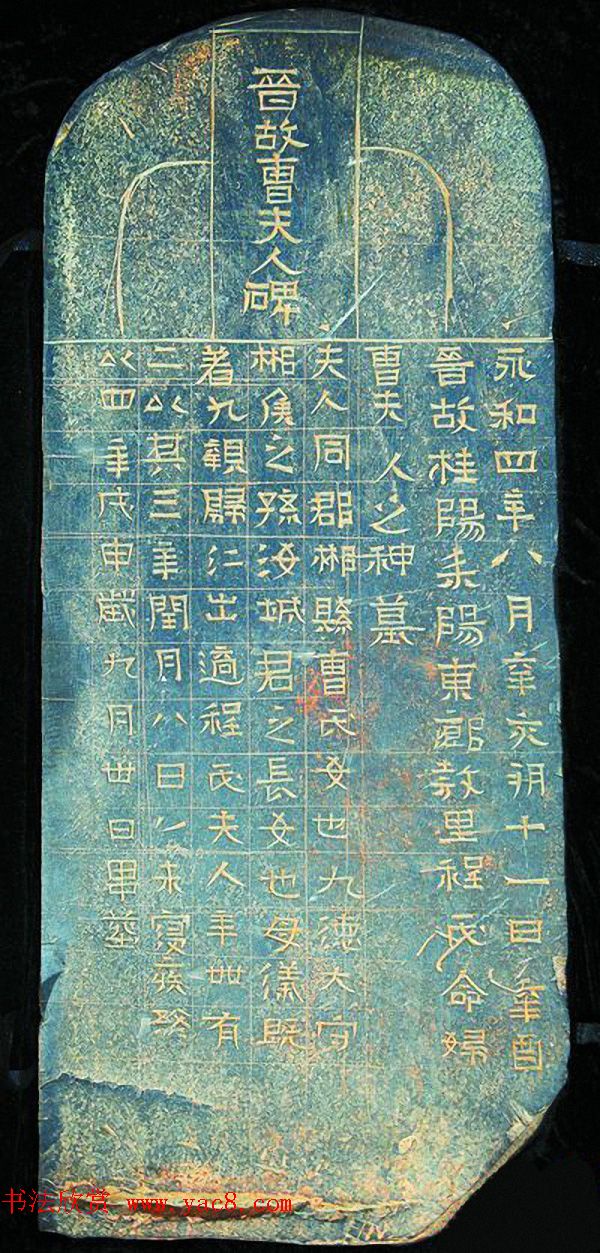 晉故曹夫人碑
永和四年八月辛亥朔十一日辛酉
晉故桂陽耒陽東鄉敦里程氏命婦
曹夫人之神墓
夫人同郡郴縣曹氏女也九德大守
郴侯之孫汝城君之長女也母儀既
著九親歸仁出適程氏夫人年卅有
二以其三年閏月八日以來寑疾終
以四年戊申歲九月廿日畢葬
书法欣赏 www.yac8.com